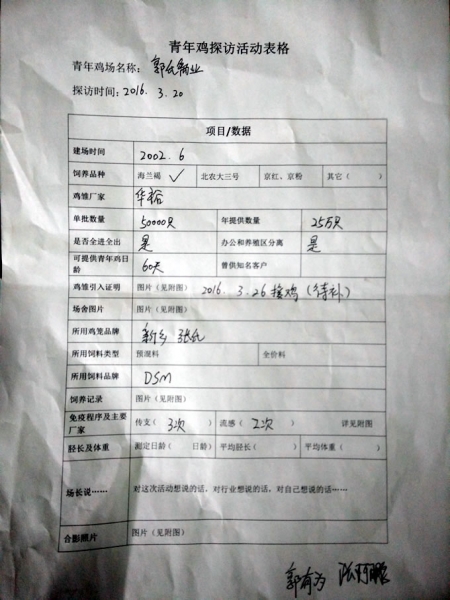 青年鸡探访活动表格
青年鸡场名称：郭氏禽业
探访时间：2016.3.20
项目/数据
建场时间 2002.6
饲养品种 海兰褐 ✓ 北农大三号 京红、京粉 其它（ ）
鸡雏厂家 华裕
单批数量 50000只 年提供数量 25万只
是否全进全出 是 办公和养殖区分离 是
可提供青年鸡日龄 60天 曾供知名客户
鸡雏引入证明 图片（见附图） 2016.3.26接鸡（待补）
场舍图片 图片（见附图）
所用鸡笼品牌 新乡 张氏
所用饲料类型 预混料 全价料
所用饲料品牌 DSM
饲养记录 图片（见附图）
免疫程序及主要厂家 传支（ 3次 ） 流感（ 2次 ） 详见附图
胫长及体重 测定日龄（ 日龄） 平均胫长（ ） 平均体重（ ）
场长说…… 对这次活动想说的话，对行业想说的话，对自己想说的话……
合影照片 图片（见附图）
郭有为